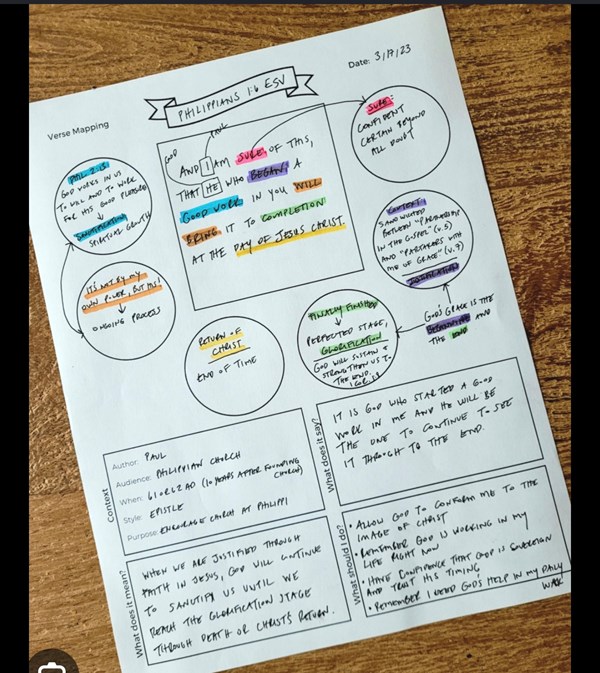 Date: 3/17/23
Verse Mapping
PHILIPPIANS 1:6 ESV
GOD
PAUL
AND I AM SURE OF THIS,
THAT HE WHO BEGAN A
GOOD WORK IN YOU WILL
BRING IT TO COMPLETION
AT THE DAY OF JESUS CHRIST
SURE:
CONFIDENT
CERTAIN BEYOND
ALL DOUBT
PHIL 2:13
GOD WORKS IN US
TO WILL AND TO WORK
FOR HIS GOOD PLEASURE
SANCTIFICATION
SPIRITUAL GROWTH
CONTEXT:
SANDWICHED
BETWEEN "PARTNERSHIP
IN THE GOSPEL" (v.5)
AND "PARTAKERS WITH
ME OF GRACE" (v.7)
JUSTIFICATION
IT'S NOT BY MY
OWN POWER, BUT HIS!
ONGOING PROCESS
RETURN OF
CHRIST
END OF TIME
FINALLY FINISHED
PERFECTED STAGE,
GLORIFICATION
GOD WILL SUSTAIN &
STRENGTHEN US TO
THE END.
1 COR. 1:8
GOD'S GRACE IS THE
BEGINNING AND
THE END
Context
Author: PAUL
Audience: PHILIPPIAN CHURCH
When: 61 OR 62 AD (10 YEARS AFTER FOUNDING
CHURCH)
Style: EPISTLE
Purpose: ENCOURAGE CHURCH AT PHILIPPI
What does it say?
IT IS GOD WHO STARTED A GOOD
WORK IN ME AND HE WILL BE
THE ONE TO CONTINUE TO SEE
IT THROUGH TO THE END.
What does it mean?
WHEN WE ARE JUSTIFIED THROUGH
FAITH IN JESUS, GOD WILL CONTINUE
TO SANCTIFY US UNTIL WE
REACH THE GLORIFICATION STAGE
THROUGH DEATH OR CHRIST'S RETURN.
What should I do?
• ALLOW GOD TO CONFORM ME TO THE
IMAGE OF CHRIST
• REMEMBER GOD IS WORKING IN MY
LIFE RIGHT NOW
• HAVE CONFIDENCE THAT GOD IS SOVEREIGN
AND TRUST HIS TIMING
• REMEMBER I NEED GOD'S HELP IN MY DAILY
WALK